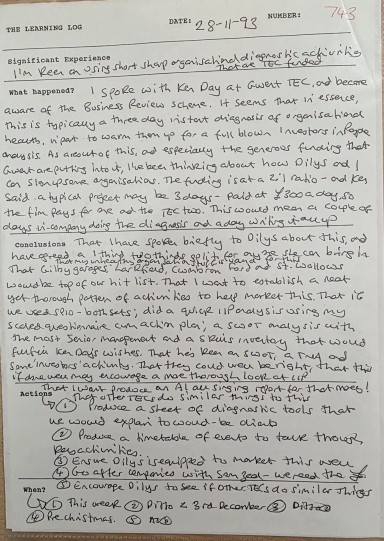 743
THE LEARNING LOG DATE: 28-11-93 NUMBER:
Significant Experience
I'm keen on using short sharp organisational diagnostic activities
that are TEC funded
What happened? I spoke with Ken Day at Gwent TEC, and became
aware of the Business Review Scheme. It seems that in essence,
this is typically a three day instant diagnosis of organisational
health, in part to warm them up for a full blown Investors in People
analysis. As a result of this, and especially the generous funding that
Gwent are putting into it, I've been thinking about how Dilys and I
can sign up some organisations. The funding is at a 2:1 ratio - and Ken
said a typical project may be 3 days - paid at £300 a day, so
the firm pays for one and the TEC two. This would mean a couple of
days in-company doing the diagnosis and a day writing it all up
Conclusions That I have spoken briefly to Dilys about this, and
have agreed a third two thirds split for any she can bring in
That Gilby garages, Cwmbran Ford and St. Wollows
would be top of our hit list. That I want to establish a neat
yet thorough pattern of activities to help market this. That if
we used SPIO - both sets; did a quick IIP analysis using my
scaled questionnaire cum action plan; a SWOT analysis with
the most senior management and a skills inventory that would
fulfil Ken Day's wishes. That he's keen on SWOT, a TNA and
some investors' activity. That they could well be right, that this
if done well may encourage a more thorough look at IIP
That I want produce an all singing report for that money!
That other TECs do similar things to this
Actions
① Produce a sheet of diagnostic tools that
we would explain to would-be clients
② Produce a timetable of events to talk through
key activities.
③ Ensure Dilys is equipped to market this well
④ Go after companies with Sam zeal - we need the
⑤ Encourage Dilys to see if other TECs do similar things
When?
① This week ② Ditto 3rd December ③ Ditto
④ Pre christmas. ⑤